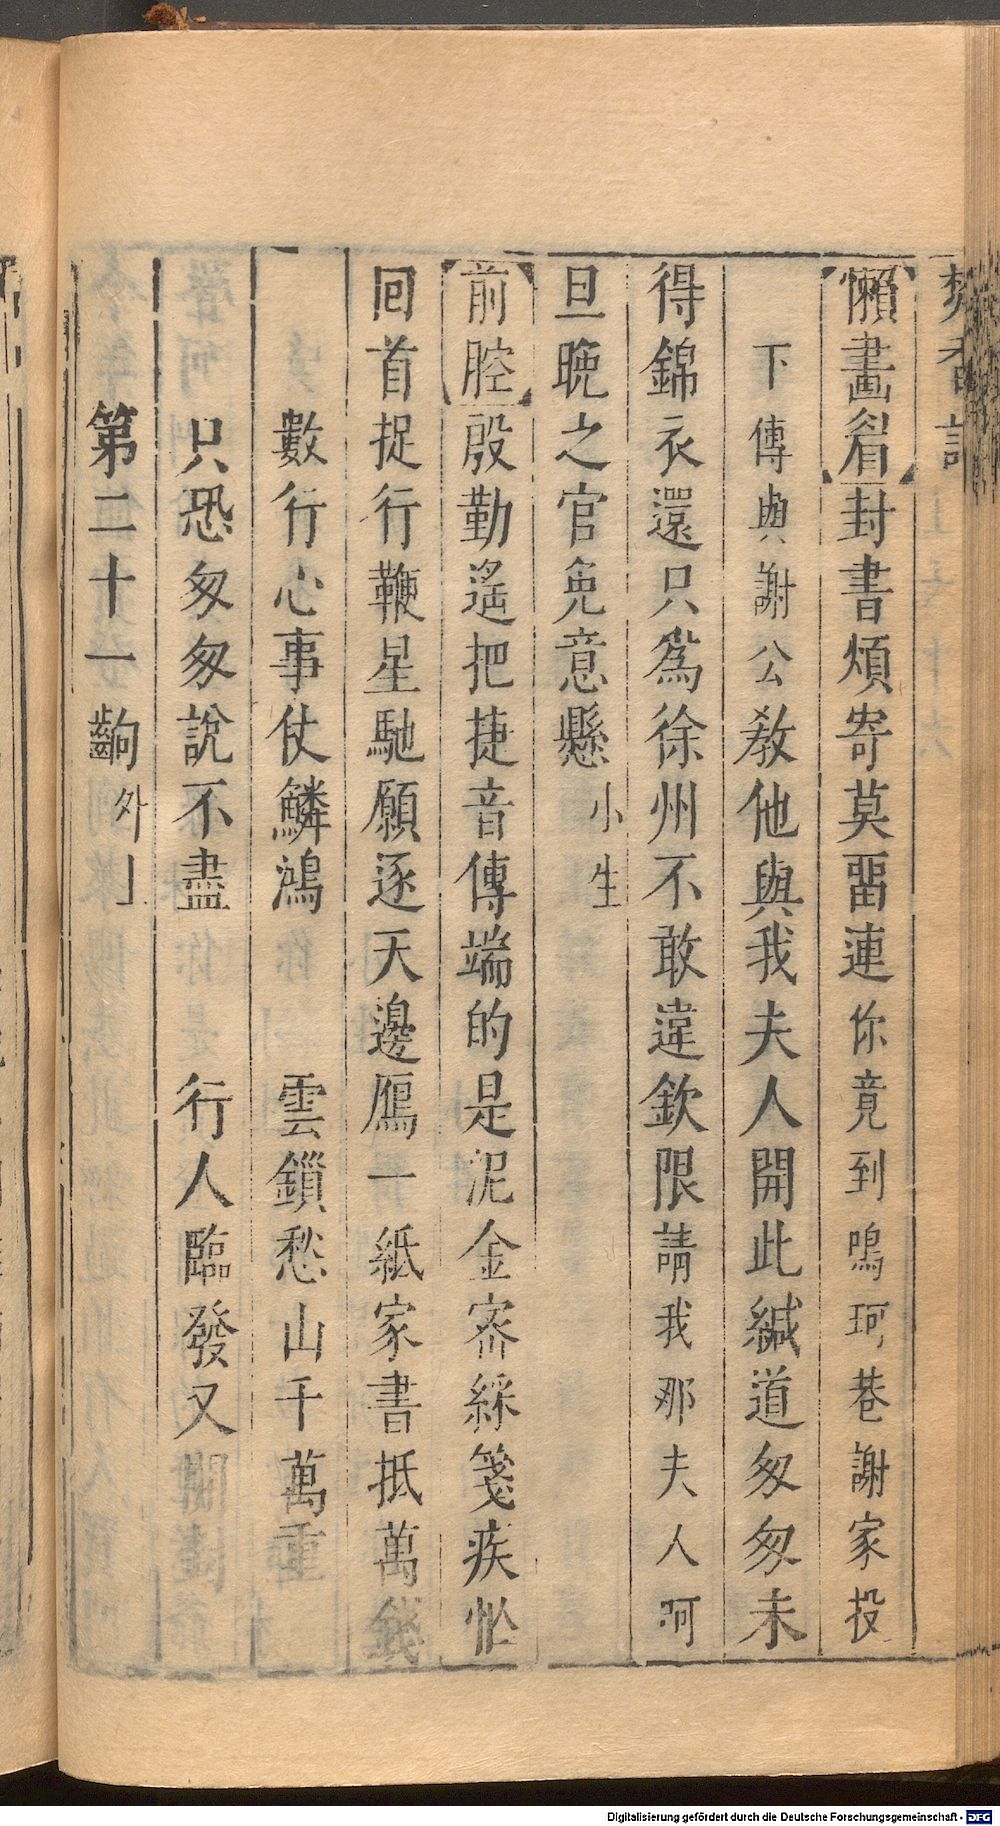 焚香記
懶畫眉封書煩寄莫畱連你竟到鳴珂巷謝家投
下傳與謝公教他與我夫人開此緘道匆匆未
得錦衣還只爲徐州不敢違欽限請我那夫人呵
旦晚之官免意懸小生
前腔殷勤遙把捷音傳端的是泥金宻綵箋疾忙
囘首捉行鞭星馳願逐天邊鴈一紙家書抵萬錢
數行心事仗鱗鴻　雲鎖愁山千萬重
只恐匆匆說不盡　行人臨發又開封
第二十一齣外上
Digitalisierung gefördert durch die Deutsche Forschungsgemeinschaft - DFG